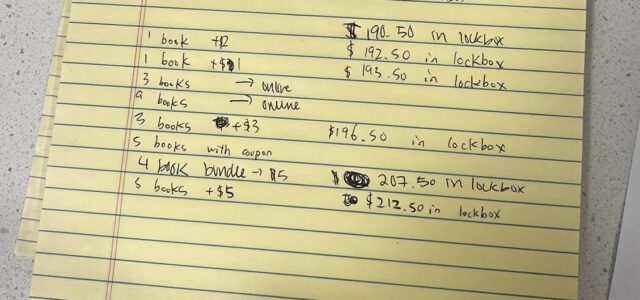 $190.50 in lockbox
1 book +$2 $192.50 in lockbox
1 book +$1 $193.50 in lockbox
3 books → online
9 books → online
3 books +$3 $196.50 in lockbox
5 books with coupon
4 book bundle → $5 207.50 in lockbox
5 books +$5 $212.50 in lockbox